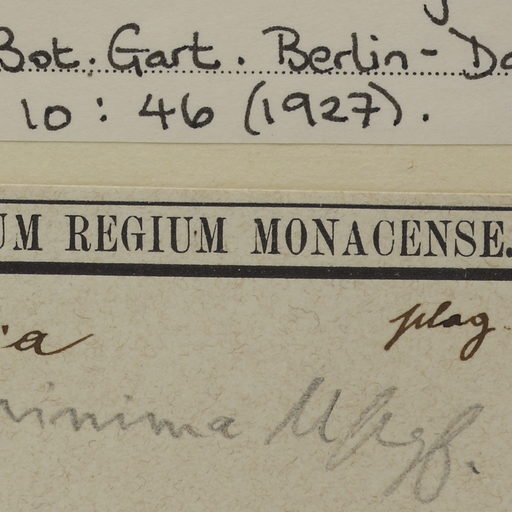 Bot. Gart. Berlin-Da
10 : 46 (1927).
UM REGIUM MONACENSE.
ia plag.
minima Uhgf.